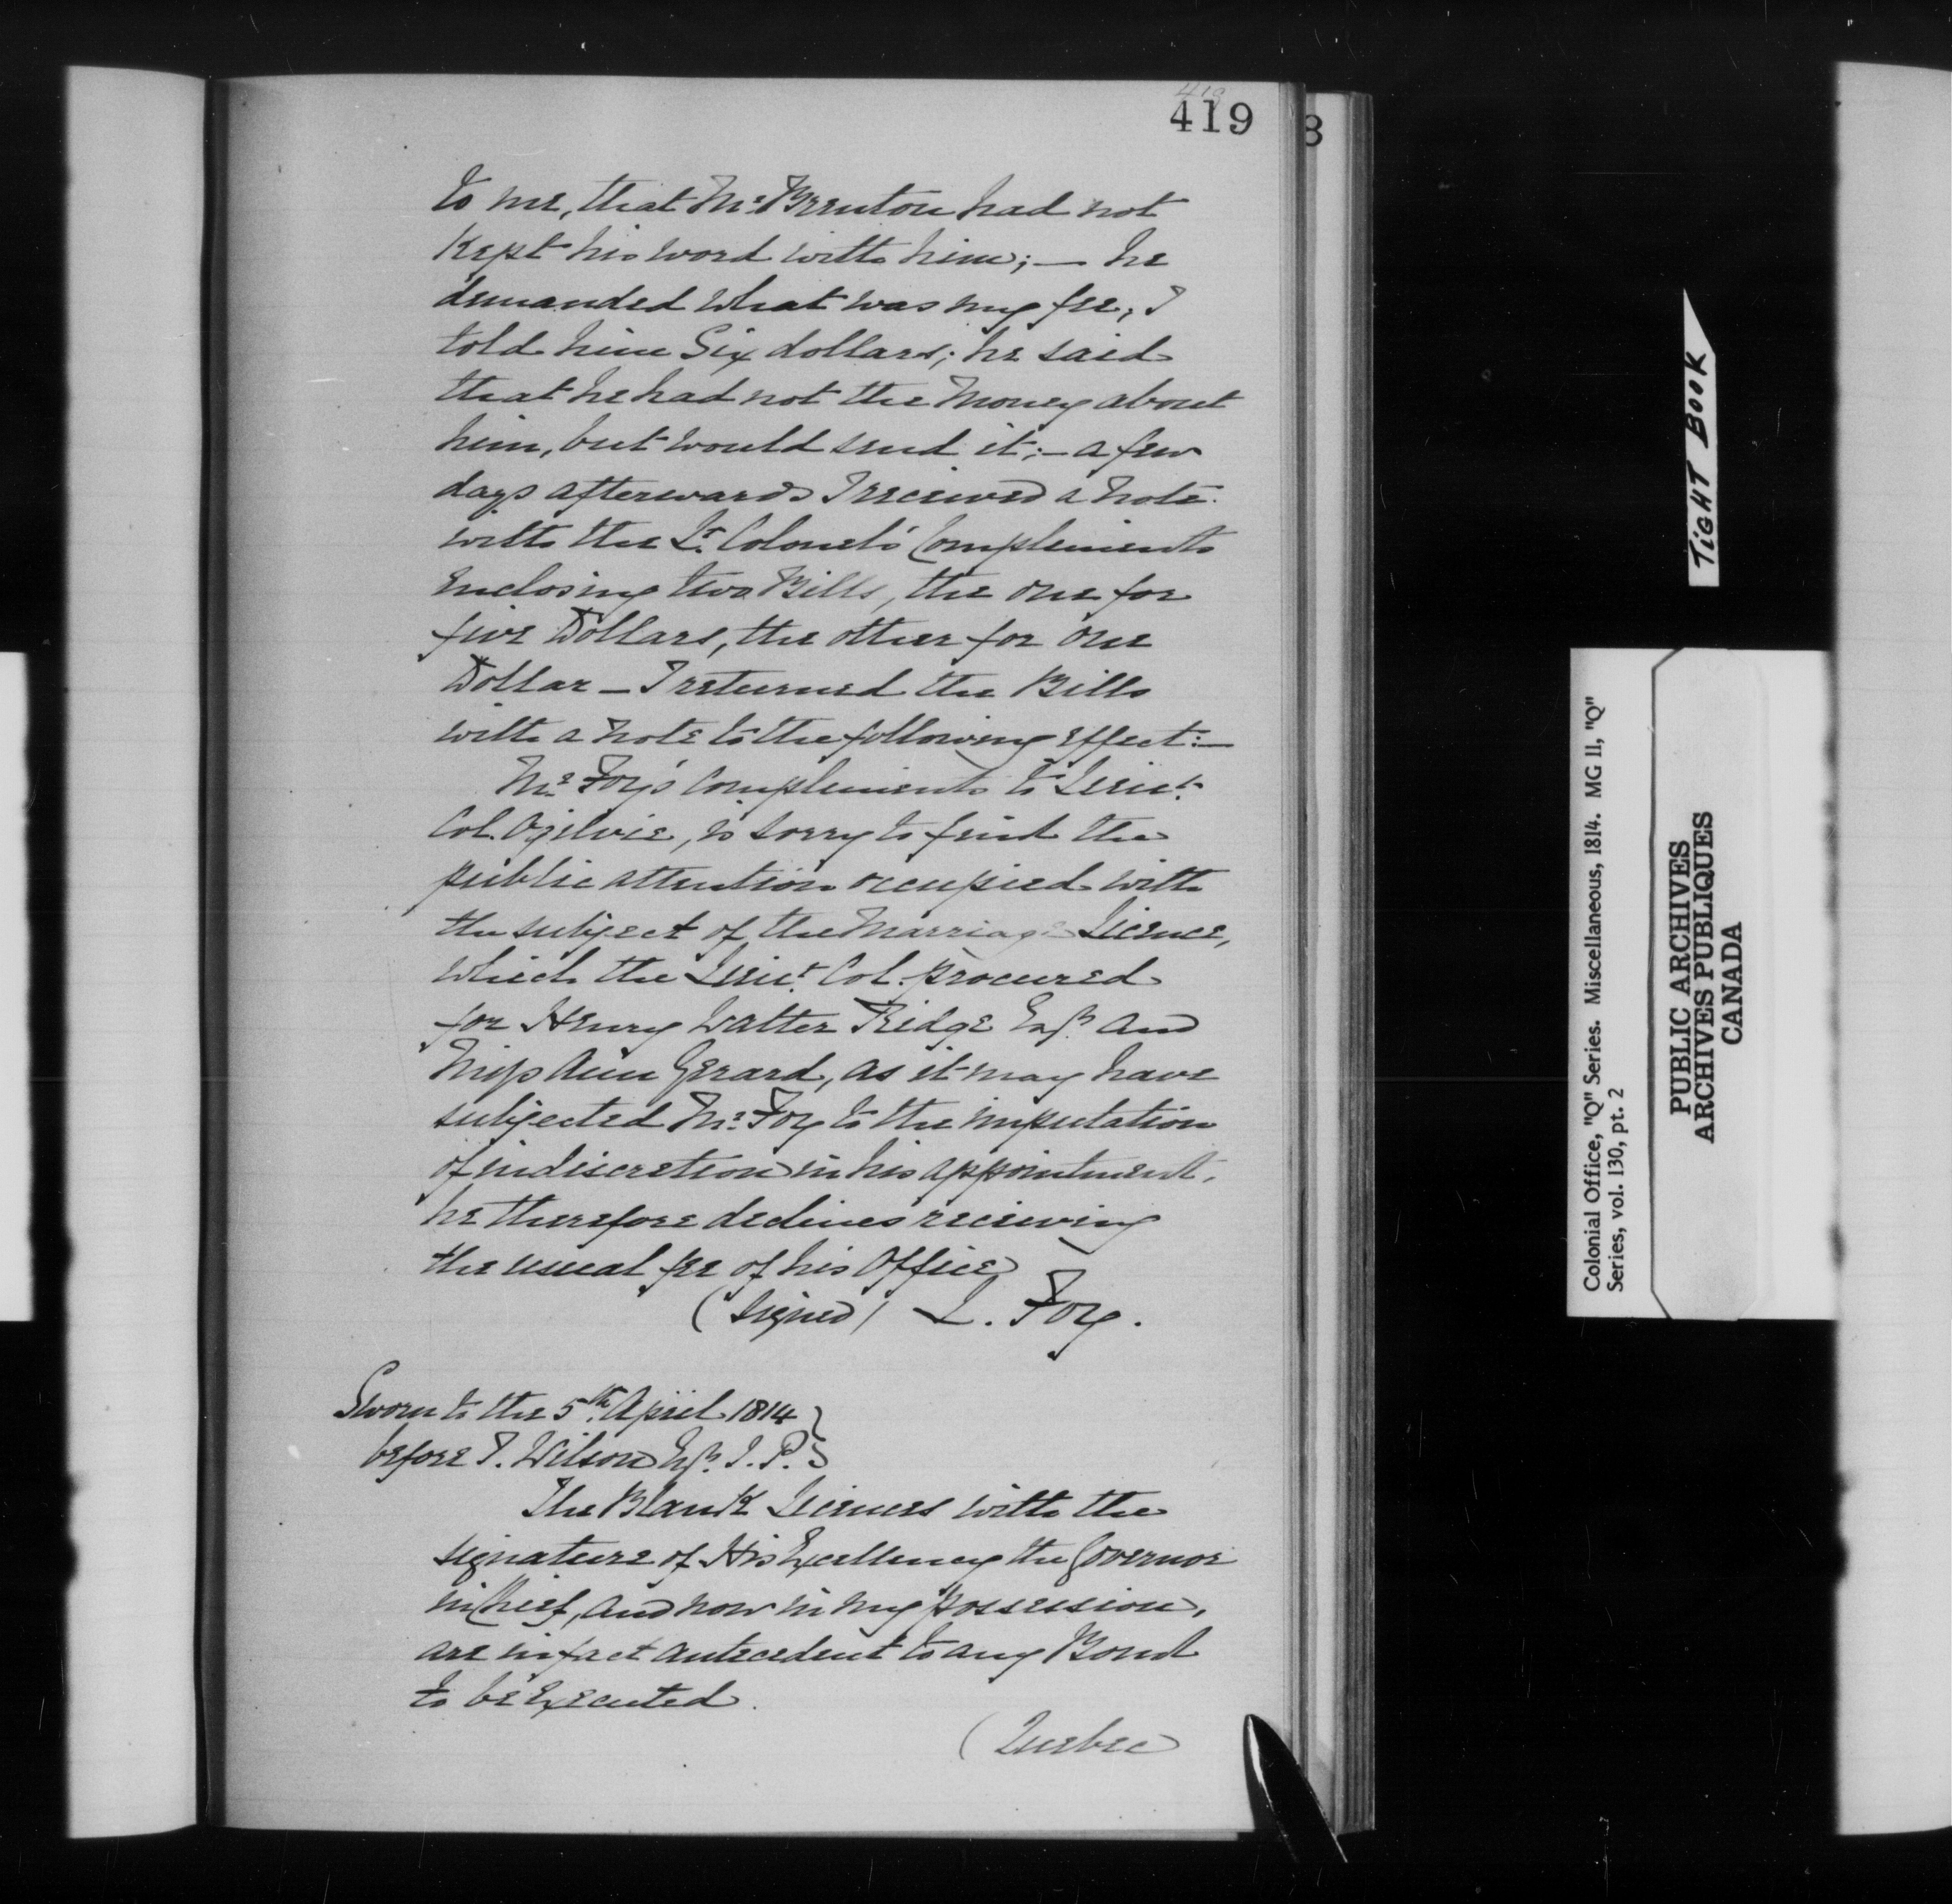 419
419
8
to me, that Mr. Brenton had not
Kept his word with him; — he
demanded what was my fee, I
told him Six dollars; he said
that he had not the Money about
him, but would send it; — a few
days afterwards I received a note
with the Lt. Colonel's Compliments
Enclosing two Bills, the one for
five Dollars, the other for one
Dollar — I returned the Bills
with a note to the following effect: —
Mr. Foy's Compliments to Lieut.
Col. Ogilvie, is sorry to find the
public attention occupied with
the subject of the Marriage Licence,
which the Lieut. Col. procured
for Henry Walter Ridge Esqr. and
Miss Ann Gerard, as it may have
subjected Mr. Foy to the imputation
of indiscretion in his appointment.
he therefore declines receiving
the usual fee of his Office
(Signed) L. Foy.
Sworn to the 5th. April 1814
before T. Wilson Esqr. J. P.
The Blank Licences with the
signature of His Excellency the Governor
in Chief, and now in my possession,
are in fact antecedent to any Bond
to be Executed.
(Quebec
TIGHT BOOK
Colonial Office, "Q" Series. Miscellaneous, 1814. MG 11, "Q"
Series, vol. 130, pt. 2
PUBLIC ARCHIVES
ARCHIVES PUBLIQUES
CANADA